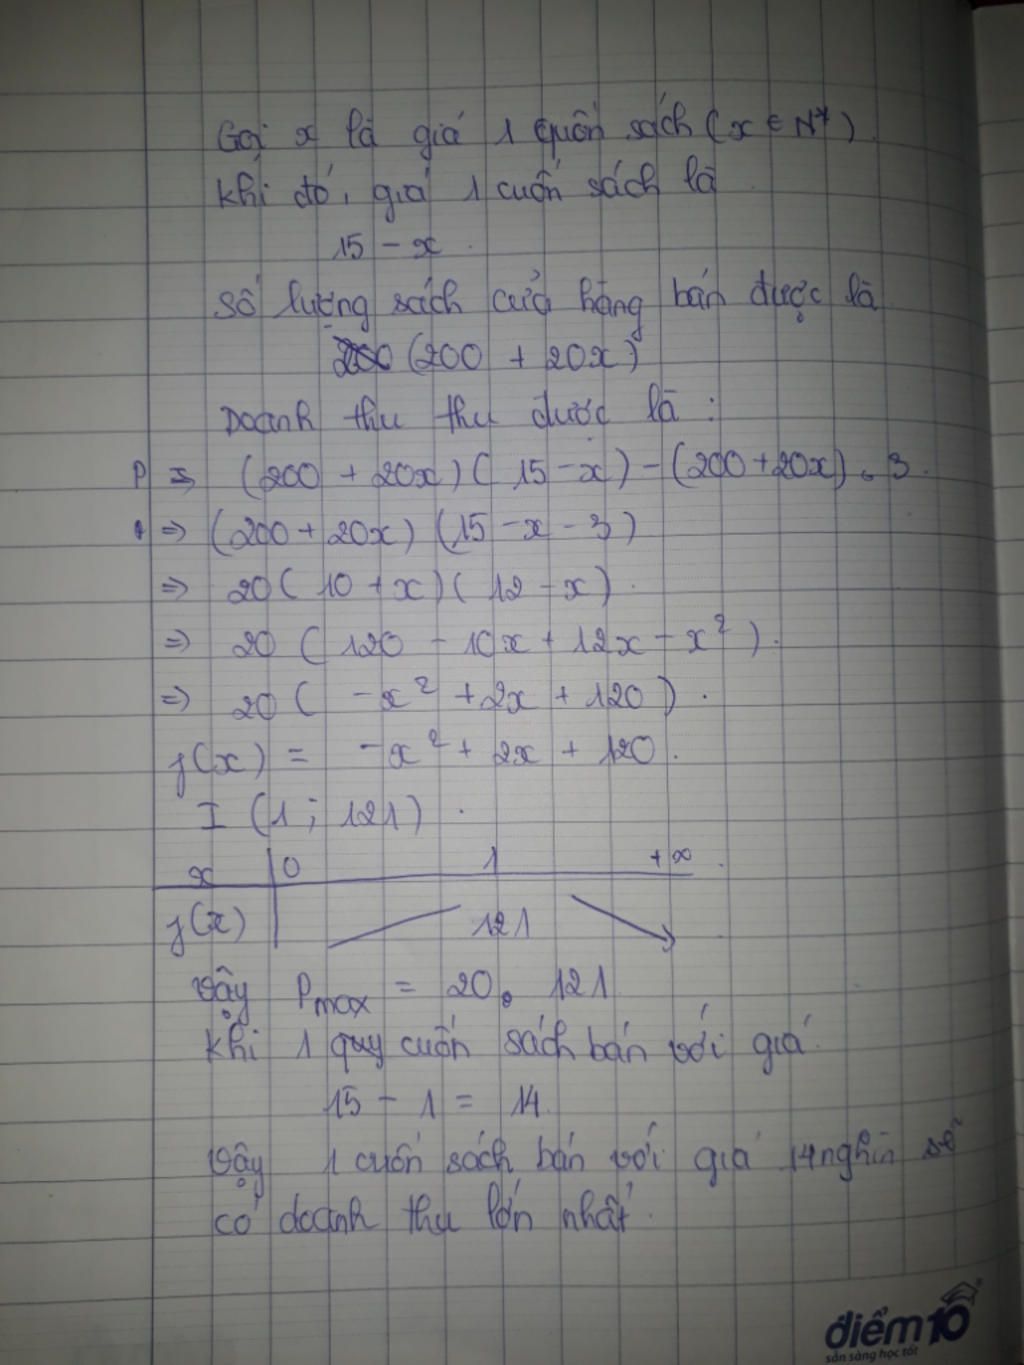 Gọi x là giá 1 quốn sách (x ∈ N*).
Khi đó, giá 1 cuốn sách là
15 - x.
Số lượng sách cửa hàng bán được là
(200 + 20x)
Doanh thu thu được là :
P = (200 + 20x)(15 - x) - (200 + 20x).3.
⇒ (200 + 20x)(15 - x - 3)
⇒ 20(10 + x)(12 - x).
⇒ 20(120 - 10x + 12x - x²).
⇒ 20(-x² + 2x + 120).
f(x) = -x² + 2x + 120.
I (1; 121).
x 0 1 +∞.
f(x) 121
Vậy Pmax = 20. 121
Khi 1 quy cuốn sách bán với giá.
15 - 1 = 14.
Vậy 1 cuốn sách bán với giá 14 nghìn sẽ
có doanh thu lớn nhất.
điểm10
sẵn sàng học tốt